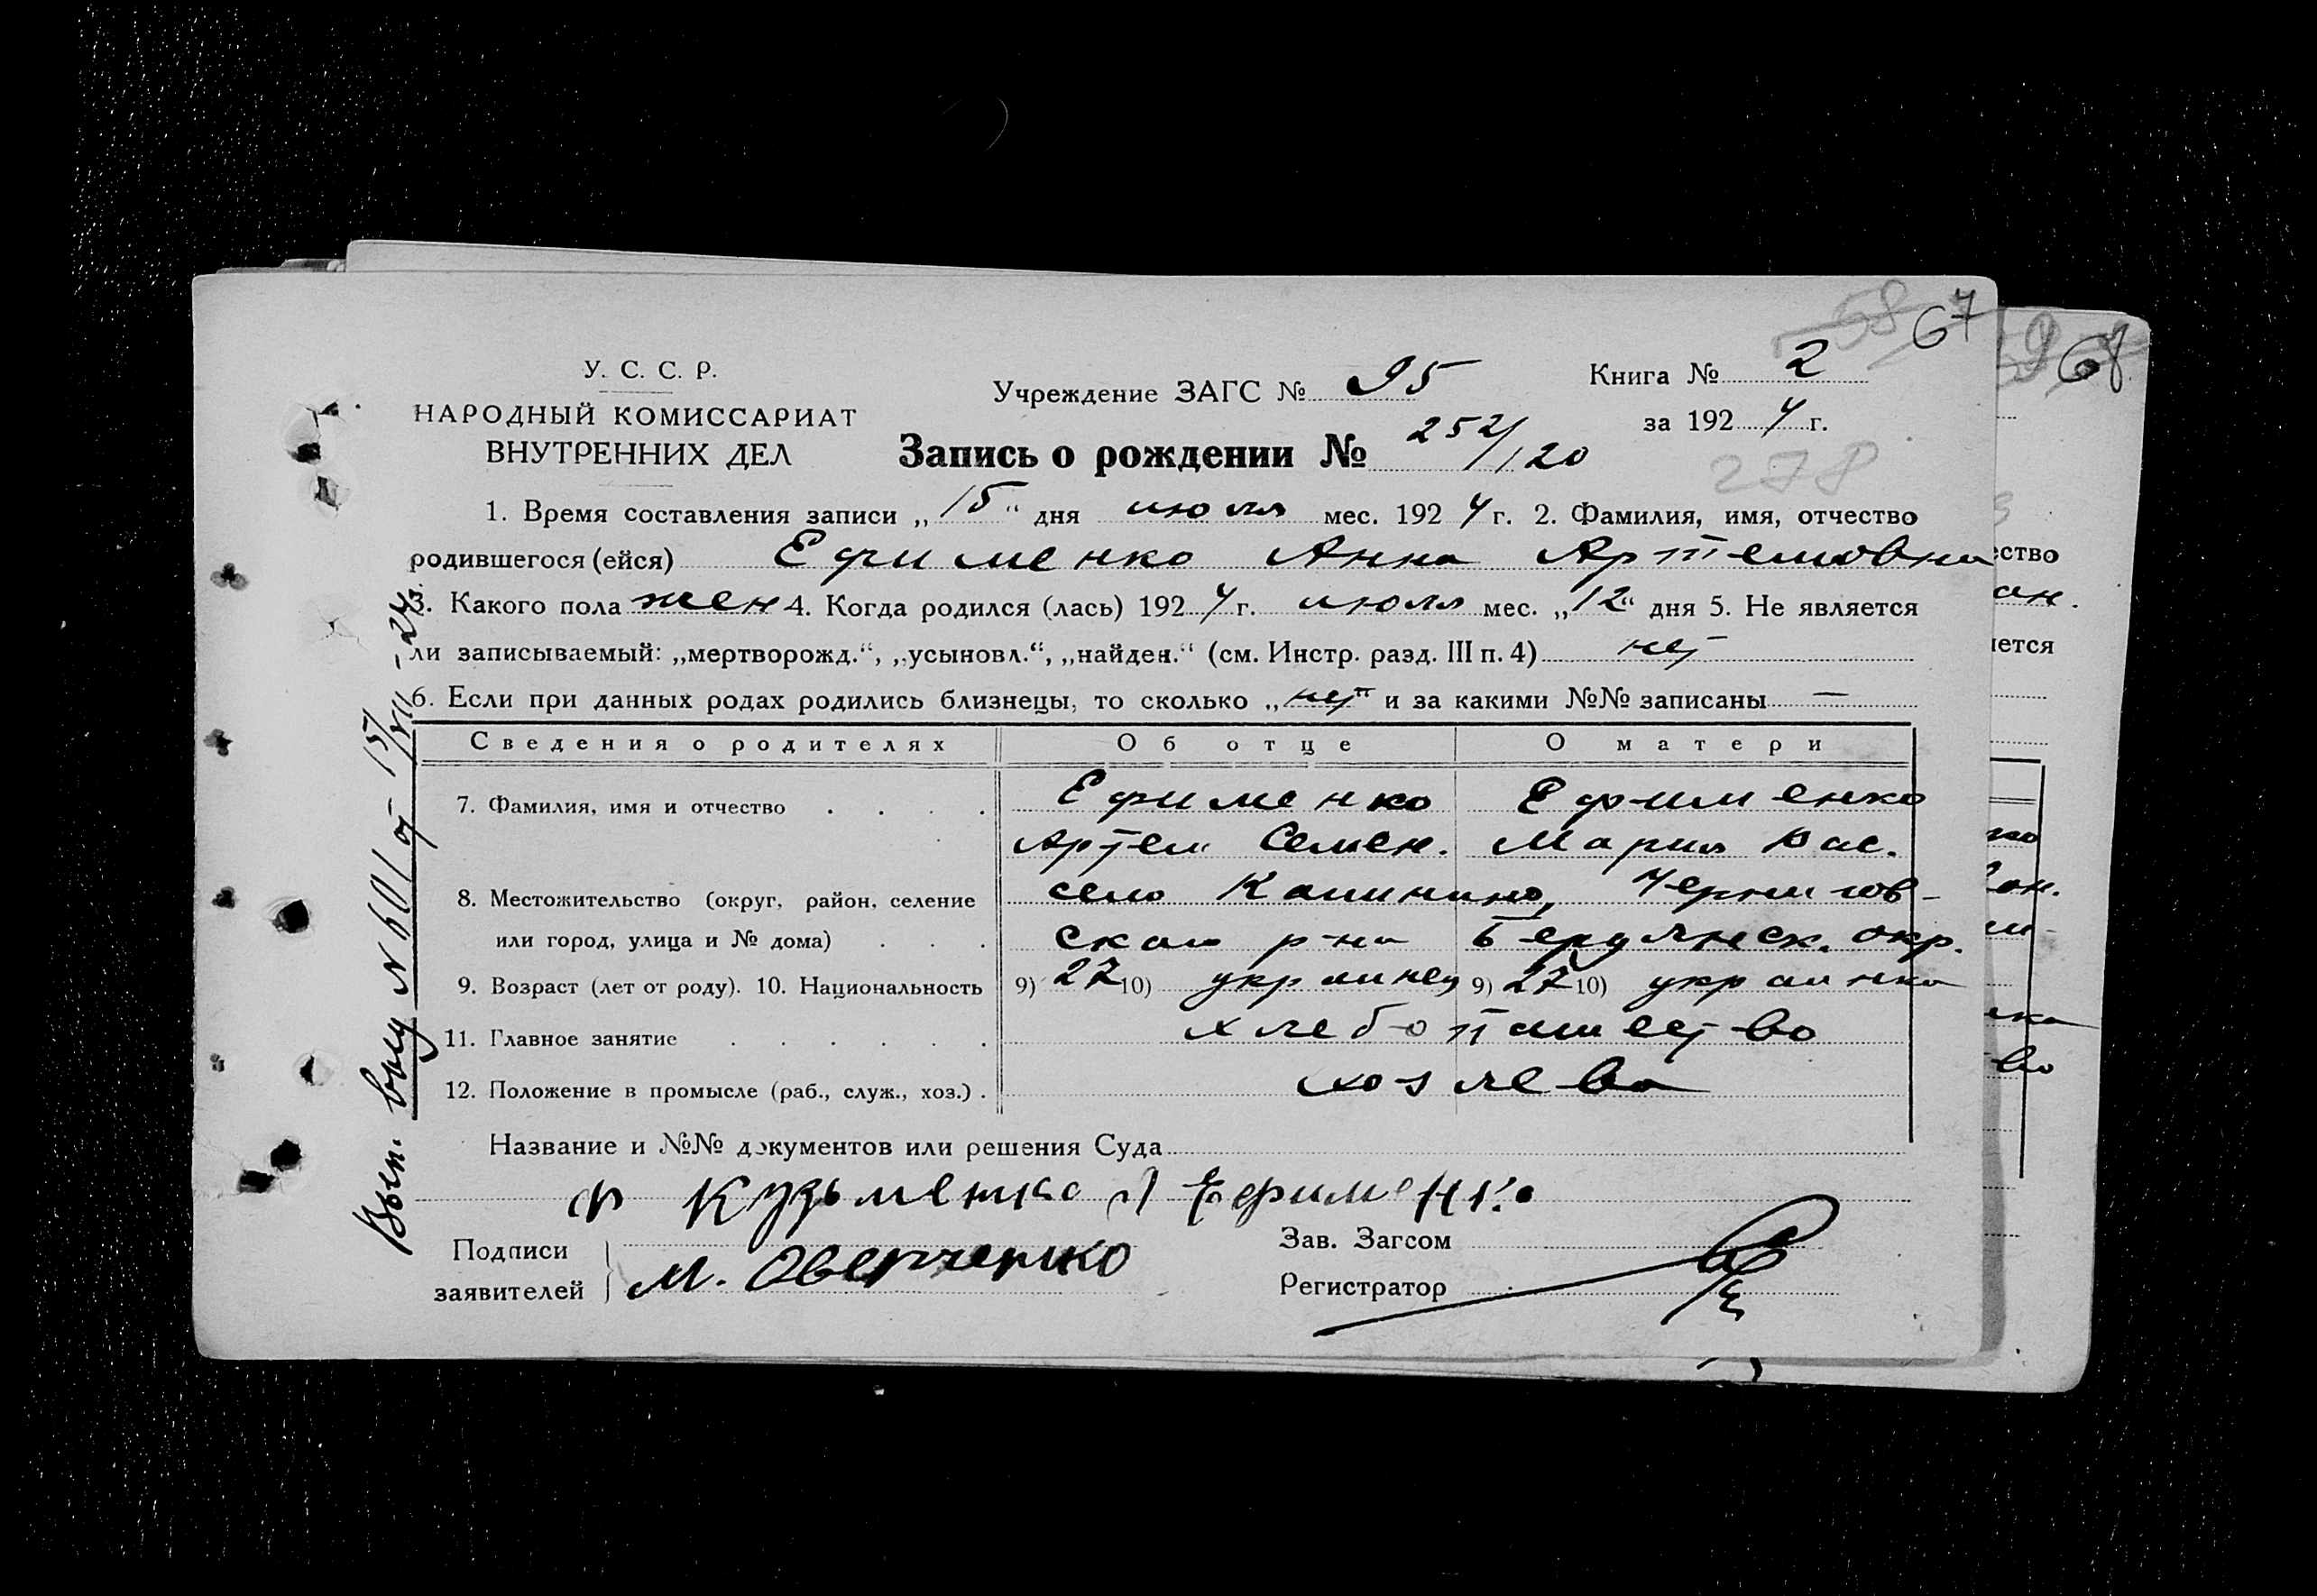 58 67
68
У. С. С. Р.
НАРОДНЫЙ КОМИССАРИАТ
ВНУТРЕННИХ ДЕЛ
Учреждение ЗАГС № 95
Книга № 2
за 192 4 г.
Запись о рождении № 252/120
278
1. Время составления записи „15“ дня июля мес. 192 4 г. 2. Фамилия, имя, отчество
родившегося (ейся) Ефименко Анна Артемовна
3. Какого пола жен 4. Когда родился (лась) 192 4 г. июля мес. „12“ дня 5. Не является
ли записываемый: „мертворожд.“, „усыновл.“, „найден.“ (см. Инстр. разд. III п. 4) нет
6. Если при данных родах родились близнецы, то сколько „нет“ и за какими №№ записаны —
Сведения о родителях Об отце О матери
7. Фамилия, имя и отчество . . . . Ефименко Ефименко
Артем Семен. Мария Вас.
8. Местожительство (округ, район, селение село Калинино, Чернигов-
или город, улица и № дома) . . . ского р-на Бердянск. окр.
9. Возраст (лет от роду). 10. Национальность 9) 27 10) украинец 9) 27 10) украинка
11. Главное занятие . . . . . . хлебопашество
12. Положение в промысле (раб., служ., хоз.) . хозяева
Название и №№ документов или решения Суда
Ф Кузьменко А Ефименко
Подписи
заявителей
М. Оверченко
Зав. Загсом
Регистратор
Вып. выд N 601 от 15/VII - 24
ество
ан.
яется